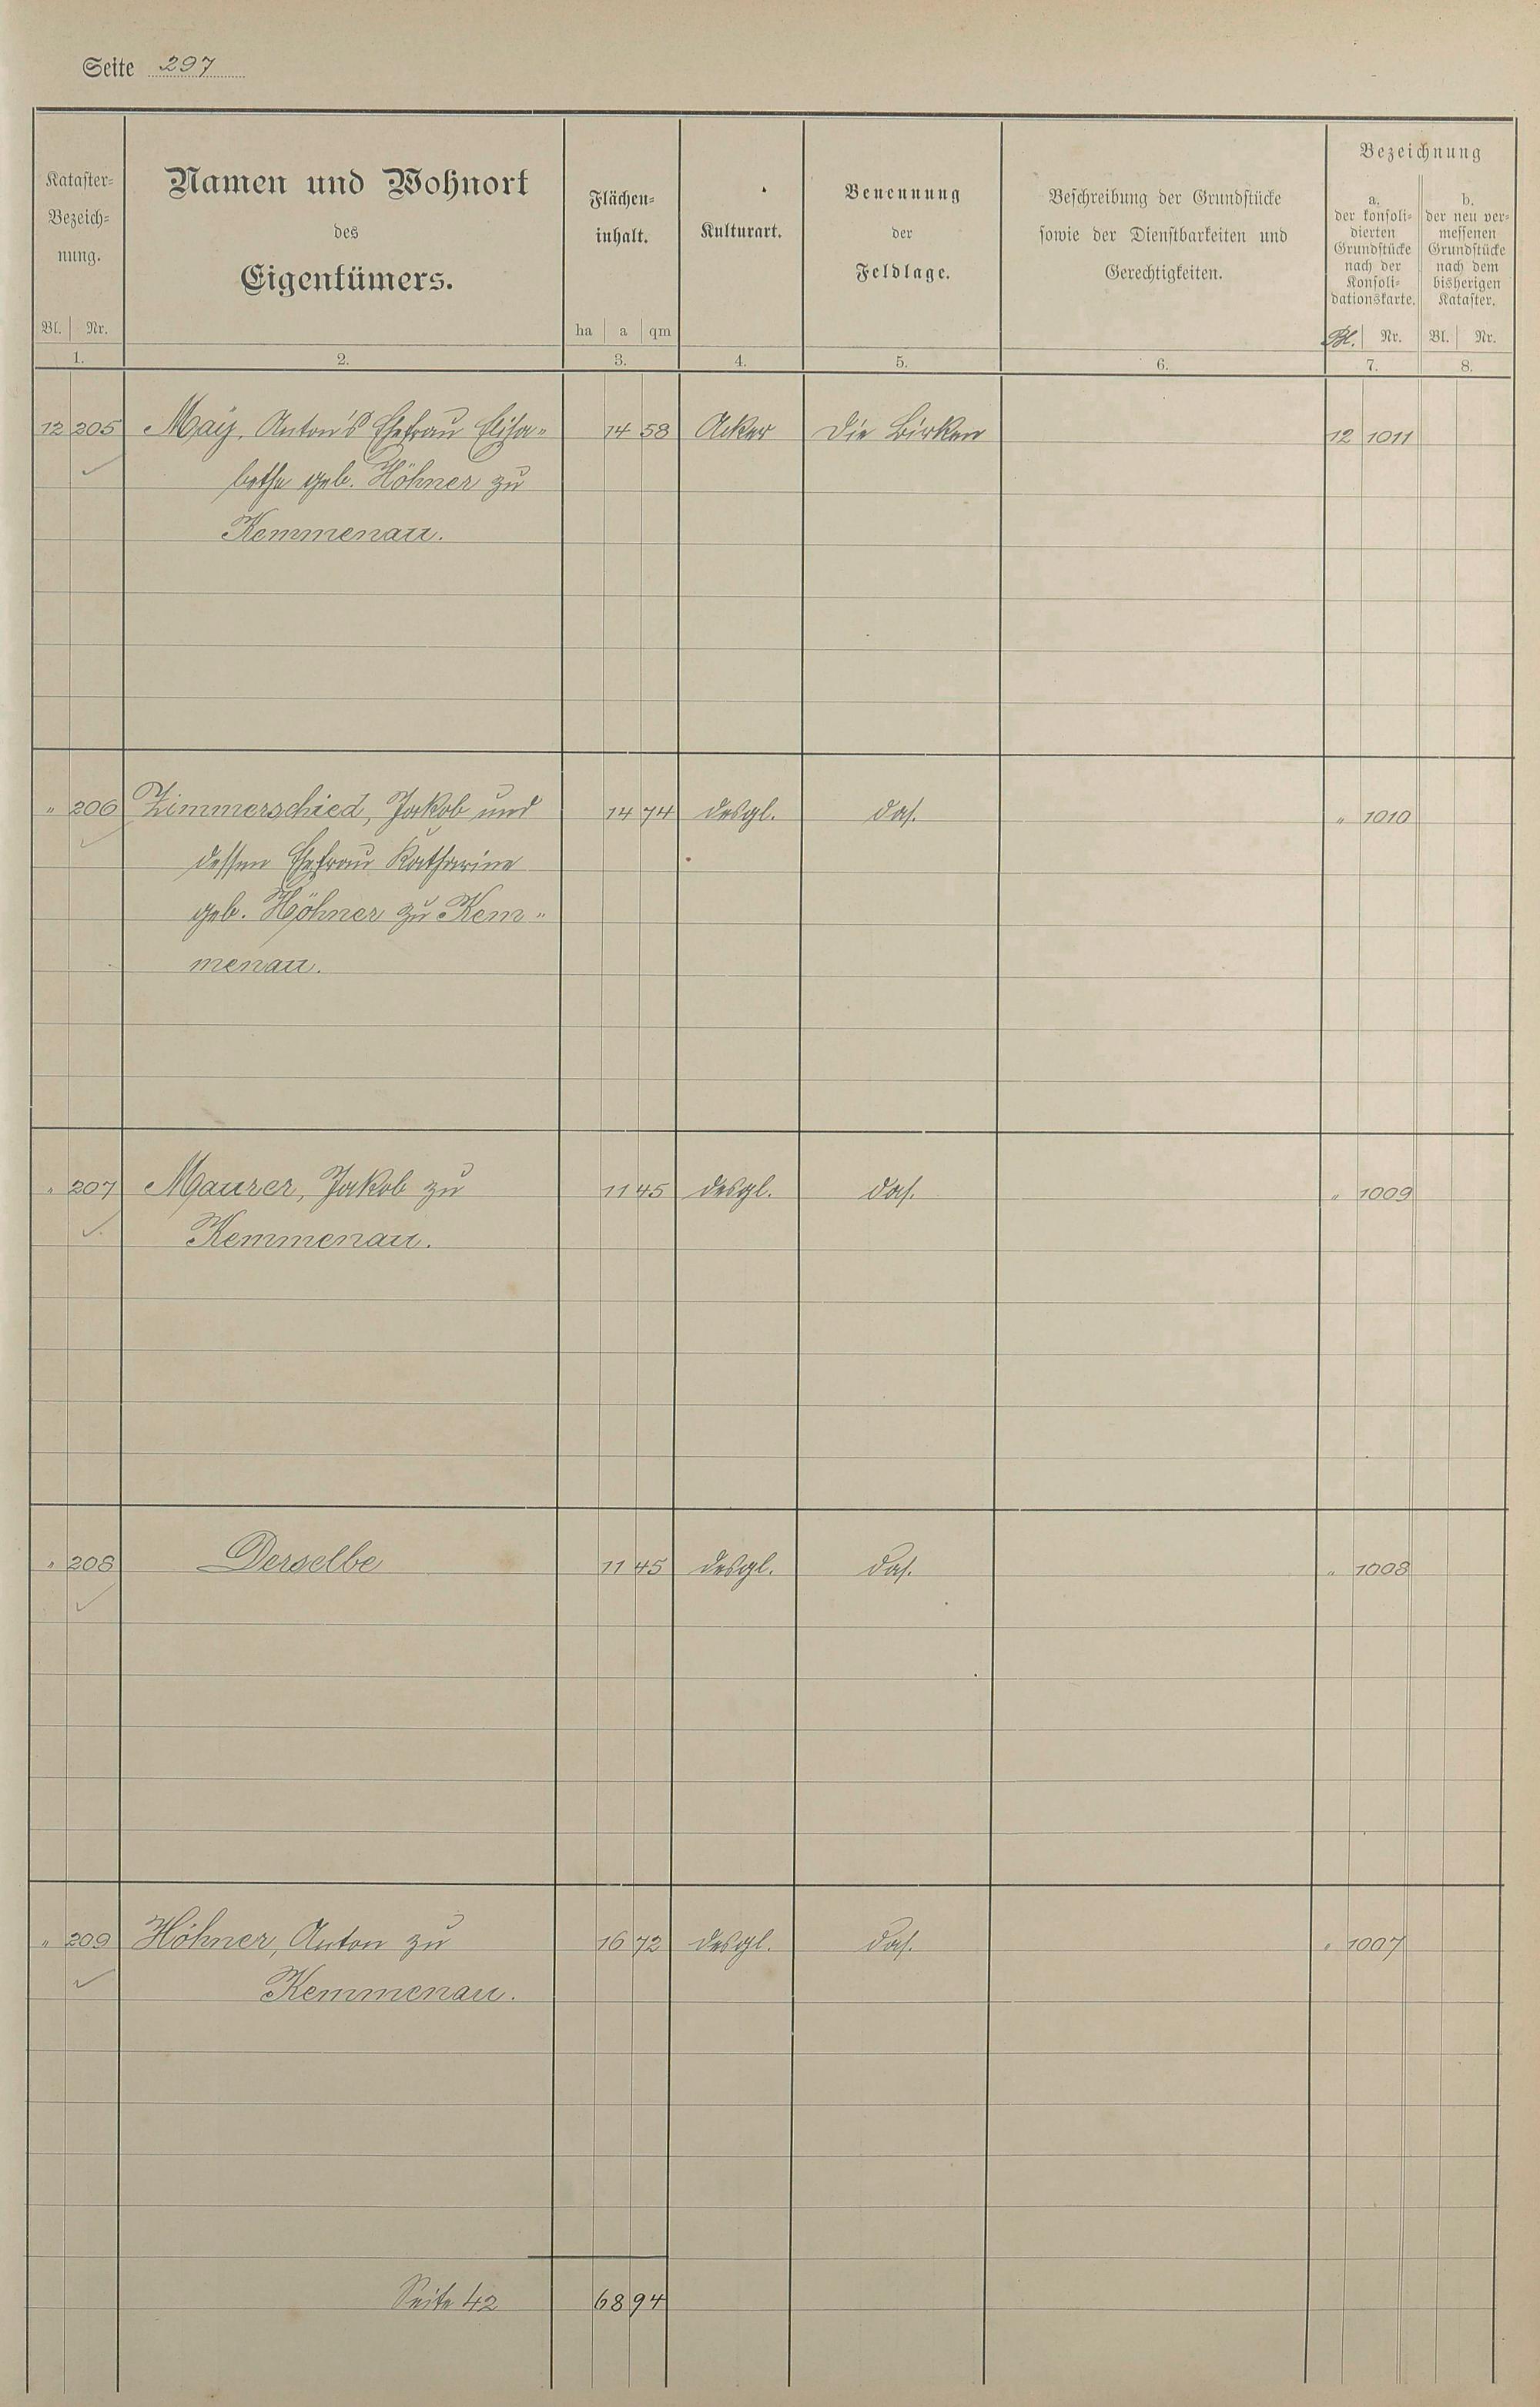 Seite 297
Kataster-
Bezeich-
nung.
Bl. Nr.
1.
Namen und Wohnort
des
Eigentümers.
2.
Flächen-
inhalt.
ha a qm
3.
Kulturart.
4.
Benennung
der
Feldlage.
5.
Beschreibung der Grundstücke
sowie der Dienstbarkeiten und
Gerechtigkeiten.
6.
Bezeichnung
a.
der konsoli-
dierten
Grundstücke
nach der
Konsoli-
dationskarte.
Bl. Nr.
7.
b.
der neu ver-
messenen
Grundstücke
nach dem
bisherigen
Kataster.
Bl. Nr.
8.
12 205 Maÿ, Anton's Ehefrau Elisa- 14 58 Acker Die Birken 12 1011
betha geb. Höhner zu
Kemmenau.
" 206 Zimmerschied, Jakob und 14 74 desgl. das. " 1010
dessen Ehefrau Katharine
geb. Höhner zu Kem-
menau.
" 207 Maurer, Jakob zu 11 45 desgl. das. " 1009
Kemmenau.
" 208 Derselbe 11 45 desgl. das. " 1008
" 209 Höhner, Anton zu 16 72 desgl. das. " 1007
Kemmenau.
Seite 42 68 94